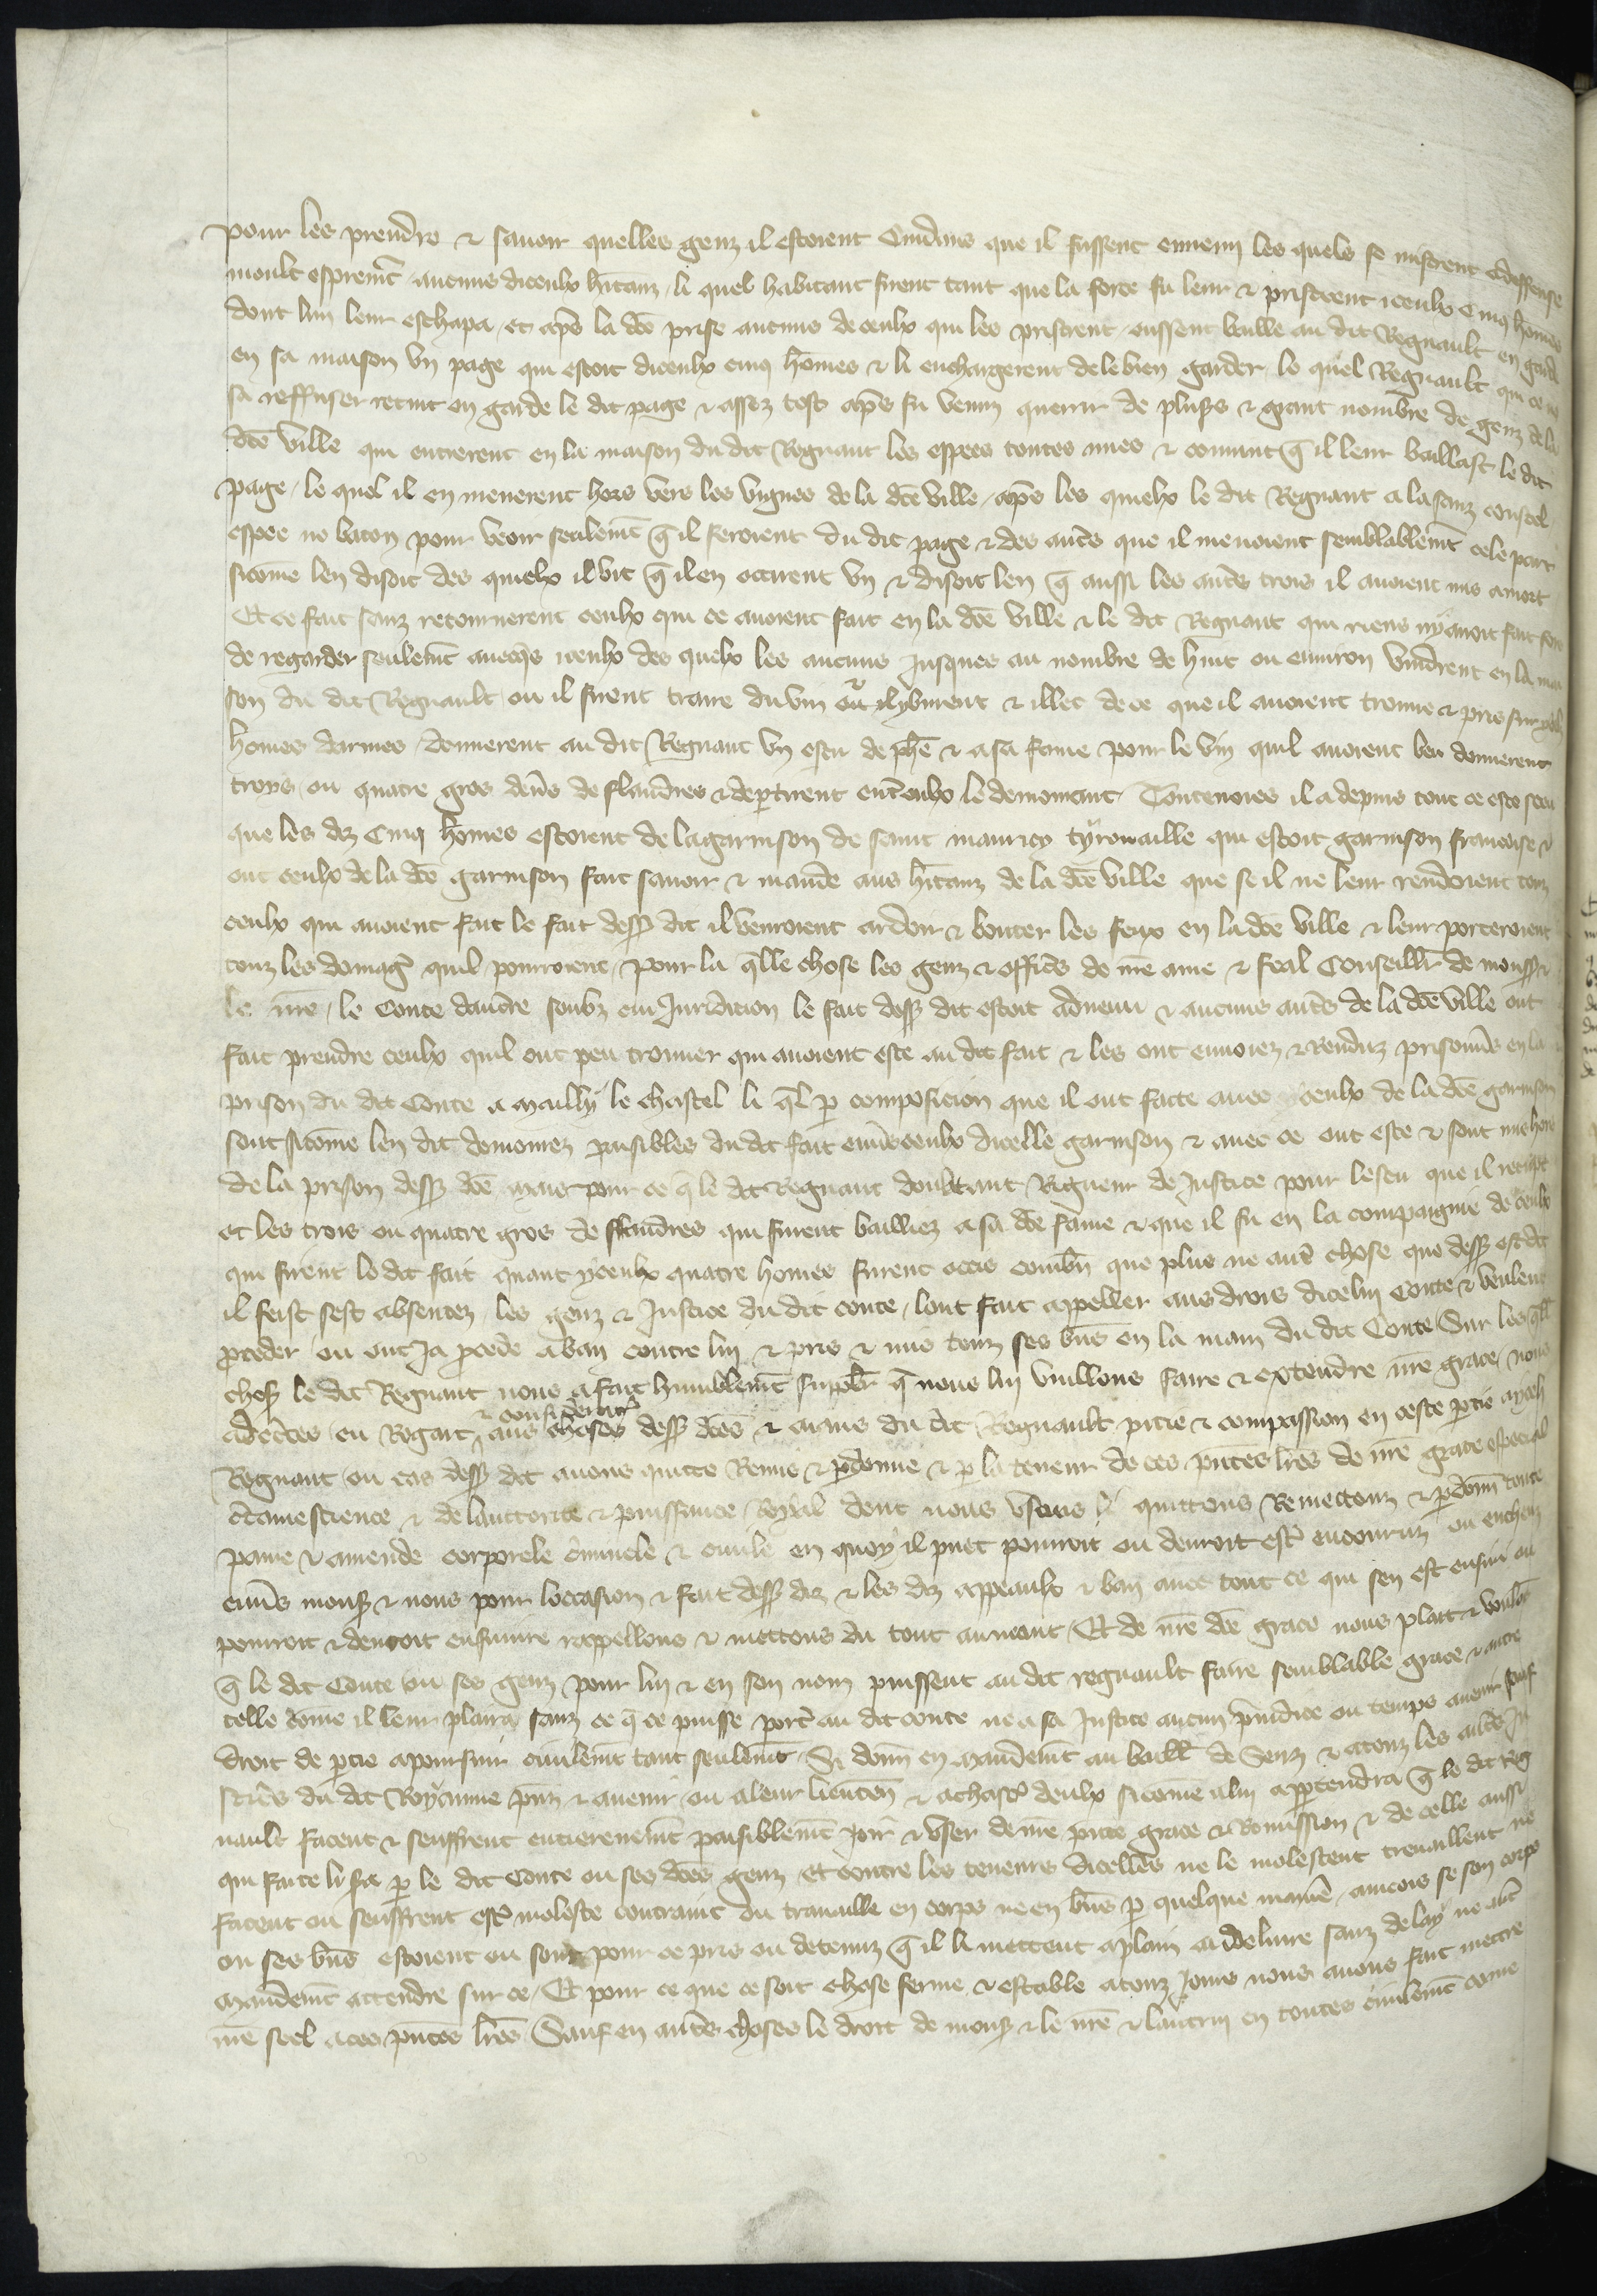 pour les prendre et savoir quelles genz il estoient Cuidans que il fussent ennemi les quels se mistrent a deffense
moult asprem̃t aucuns diceulx h̃itanz, li quel habitant firent tant que la force fu leur & pristrent iceulx Cinq hõmes
dont lun leur eschapa, et apᵉs la dc̃e prise aucuns de ceulx qui les pristrent eussent baille au dit Regnault en garde
en sa maison un page qui estoit diceulx cinq hõmes & li enchargerent de le bien garder, le quel Regnault qui ce ne
sa reffuser retint en garde le dit page & assez tost apᵉs fu venuz querir de plus̃s & grant nombre de genz de la
dc̃e ville qui entrerent en la maison du dit Regnaut les espees toutes nues & convint q̃ il leur baillast le dit
page, le quel il en menerent hors vers les vignes de la dc̃e ville, apᵉs les quielx le dit Regnaut ala sanz coustel
espee ne baton pour veoir seulem̃t q̃ il feroient du dit page & des aut̃s que il menoient semblablem̃t cele part
sicõme len disoit des quielx il vit q̃ il en occirent un & disoit len q̃ aussi les aut̃s trois il avoient mis a mort
Et ce fait sanz retournerent ceulx qui ce avoient fait en la dc̃e ville & le dit Regnaut qui riens ny avoit fait fors
de regarder seulem̃t avecq̃s iceulx des quelx les aucuns Jusques au nombre de huit ou environ vindrent en la mai
son du dit Regnault ou il firent traire du vin & il y burent & illec de ce que il avoient trouve & pris sur yceulx
hõmes darmes donnerent au dit Regnaut un escu de ph̃e & a sa fame pour le vin quil avoient beu donnerent
troys ou quatre gros den̄s de flandres & departirent ent̃ eulx le demourant Toutevoies il a depuis tout ce este sceu
que les diz Cinq hõmes estoient de la garnison de saint maurice tyrouaille qui estoit garnison francoise &
ont ceulx de la dc̃e garnison fait savoir & mande aus h̃itanz de la dc̃e ville que se il ne leur rendoient touz
ceulx qui avoient fait le fait dess̃ dit il venroient ardoir & bouter les feux en la dc̃e ville & leur porteroient
touz les domag̃ quil pourroient, Pour la q̃lle chose les genz & offic̃s de nr̃e ame & feal Conseillr̃ de mons̃ &
le nr̃e, le Conte daucre soubz cui Juridicion le fait dess̃ dit estoit advenu & aucuns aut̃s de la dc̃e ville ont
fait prendre ceulx quil ont peu trouver qui avoient este au dit fait & les ont envoiez & renduz prisonñs en la
prison du dit Conte a Mailly le chastel li q̃l p̱ composicion que il ont faicte avec yceulx de la dc̃e garnison
sont sicõme len dit demourez paisibles du dit fait env̄s ceulx dicelle garnison & avec ce ont este & sont mis hors
de la prison dess̃ dc̃e Mais pour ce q̃ le dit Regnaut doubtant Rigueur de Justice pour lescu que il receupt
et les trois ou quatre gros de flandres qui furent bailliez a sa dc̃e fame & que il fu en la compaignie de ceulx
qui firent le dit fait quant yceulx quatre hõmes furent occis combn̄ que plus ne aut̃ chose que dess̃ est dit
il feist sest absentez, les genz & Justice du dit conte, lont fait appeller aus drois dicelui Conte & veulent
p̱ceder ou ont Ja p̱cede a ban contre lui & pris & mis touz ses bñs en la main du dit Conte Sur les q̃lles
chos̃ le dit Regnaut nous a fait humblem̃t suppl̃r q̃ nous lui vuillons faire & extendre nr̃e grace, nous
adec̃tes eu Regart & consideracõn aus choses dess̃ dc̃es & aiens du dit Regnault pitie & compassion en ceste p̱tie aycel
Regnaut ou cas dess̃ dit avons quitte Remis & p̱donne & p̱ la teneur de ces pñtes lr̃es de nr̃e grace especial
c̃taine science & de lauctorite & puissance Royal dont nous usons li quittons Remettonz & p̱donn̄s toute
paine & amende corporele c̃iminele & civile en quoy il puet pourroit ou devroit est̃ encouruz ou encheuz
env̄s mons̃ & nous pour loccasion & fait dess̃ diz & les diz appeaulx & ban avec tout ce qui sen est ensui ou
pourroit & devroit ensuivre rappellons & mettons du tout au neant Et de nr̃e dc̃e grace nous plaist & voulons
q̃ le dit Conte ou ses genz pour lui & en son nom puissent au dit regnault faire semblable grace & autre
telle cõme il leur plaira sanz ce q̃ ce puisse port̃ au dit conte ne a sa Justice aucun p̃iudice ou temps avenir sauf
droit de p̱tie a poursuir civilem̃t tant seulem̃t, Si donñ en Mandem̃t au baill̃ de Senz & a touz les aut̃s Ju
stic̃s du dit Royaume p̃nz & avenir ou a leur lieuxten̄ & a chasc̃ deulx sicõme a lui app̱tendra q̃ le dit Reg
nault facent & seuffrent entierem̃t paisiblem̃t Joir & user de nr̃e p̃nte grace & Remission & de celle aussi
qui faite li sᵃ p̱ le dit Conte ou ses dc̃es genz, et contre les teneurs dicelles ne le molestent travaillent ne
facent ou seuffrent est̃ moleste contraint ou travaille en corps ne en bñs p̱ quelque manie᷑, aincois se son corps
ou ses bñs estoient ou sont pour ce pris ou detenuz q̃ il li mettent a plain a delivre sanz delay ne aut̃
Mandem̃t attendre sur ce, Et pour ce que ce soit chose ferme & estable a touz Jours nous avons fait mettre
nr̃e scel a ces pñtes lr̃es Sauf en aut̃s choses le droit de mons̃ & le nr̃e & lautrui en toutes civilem̃t cõme